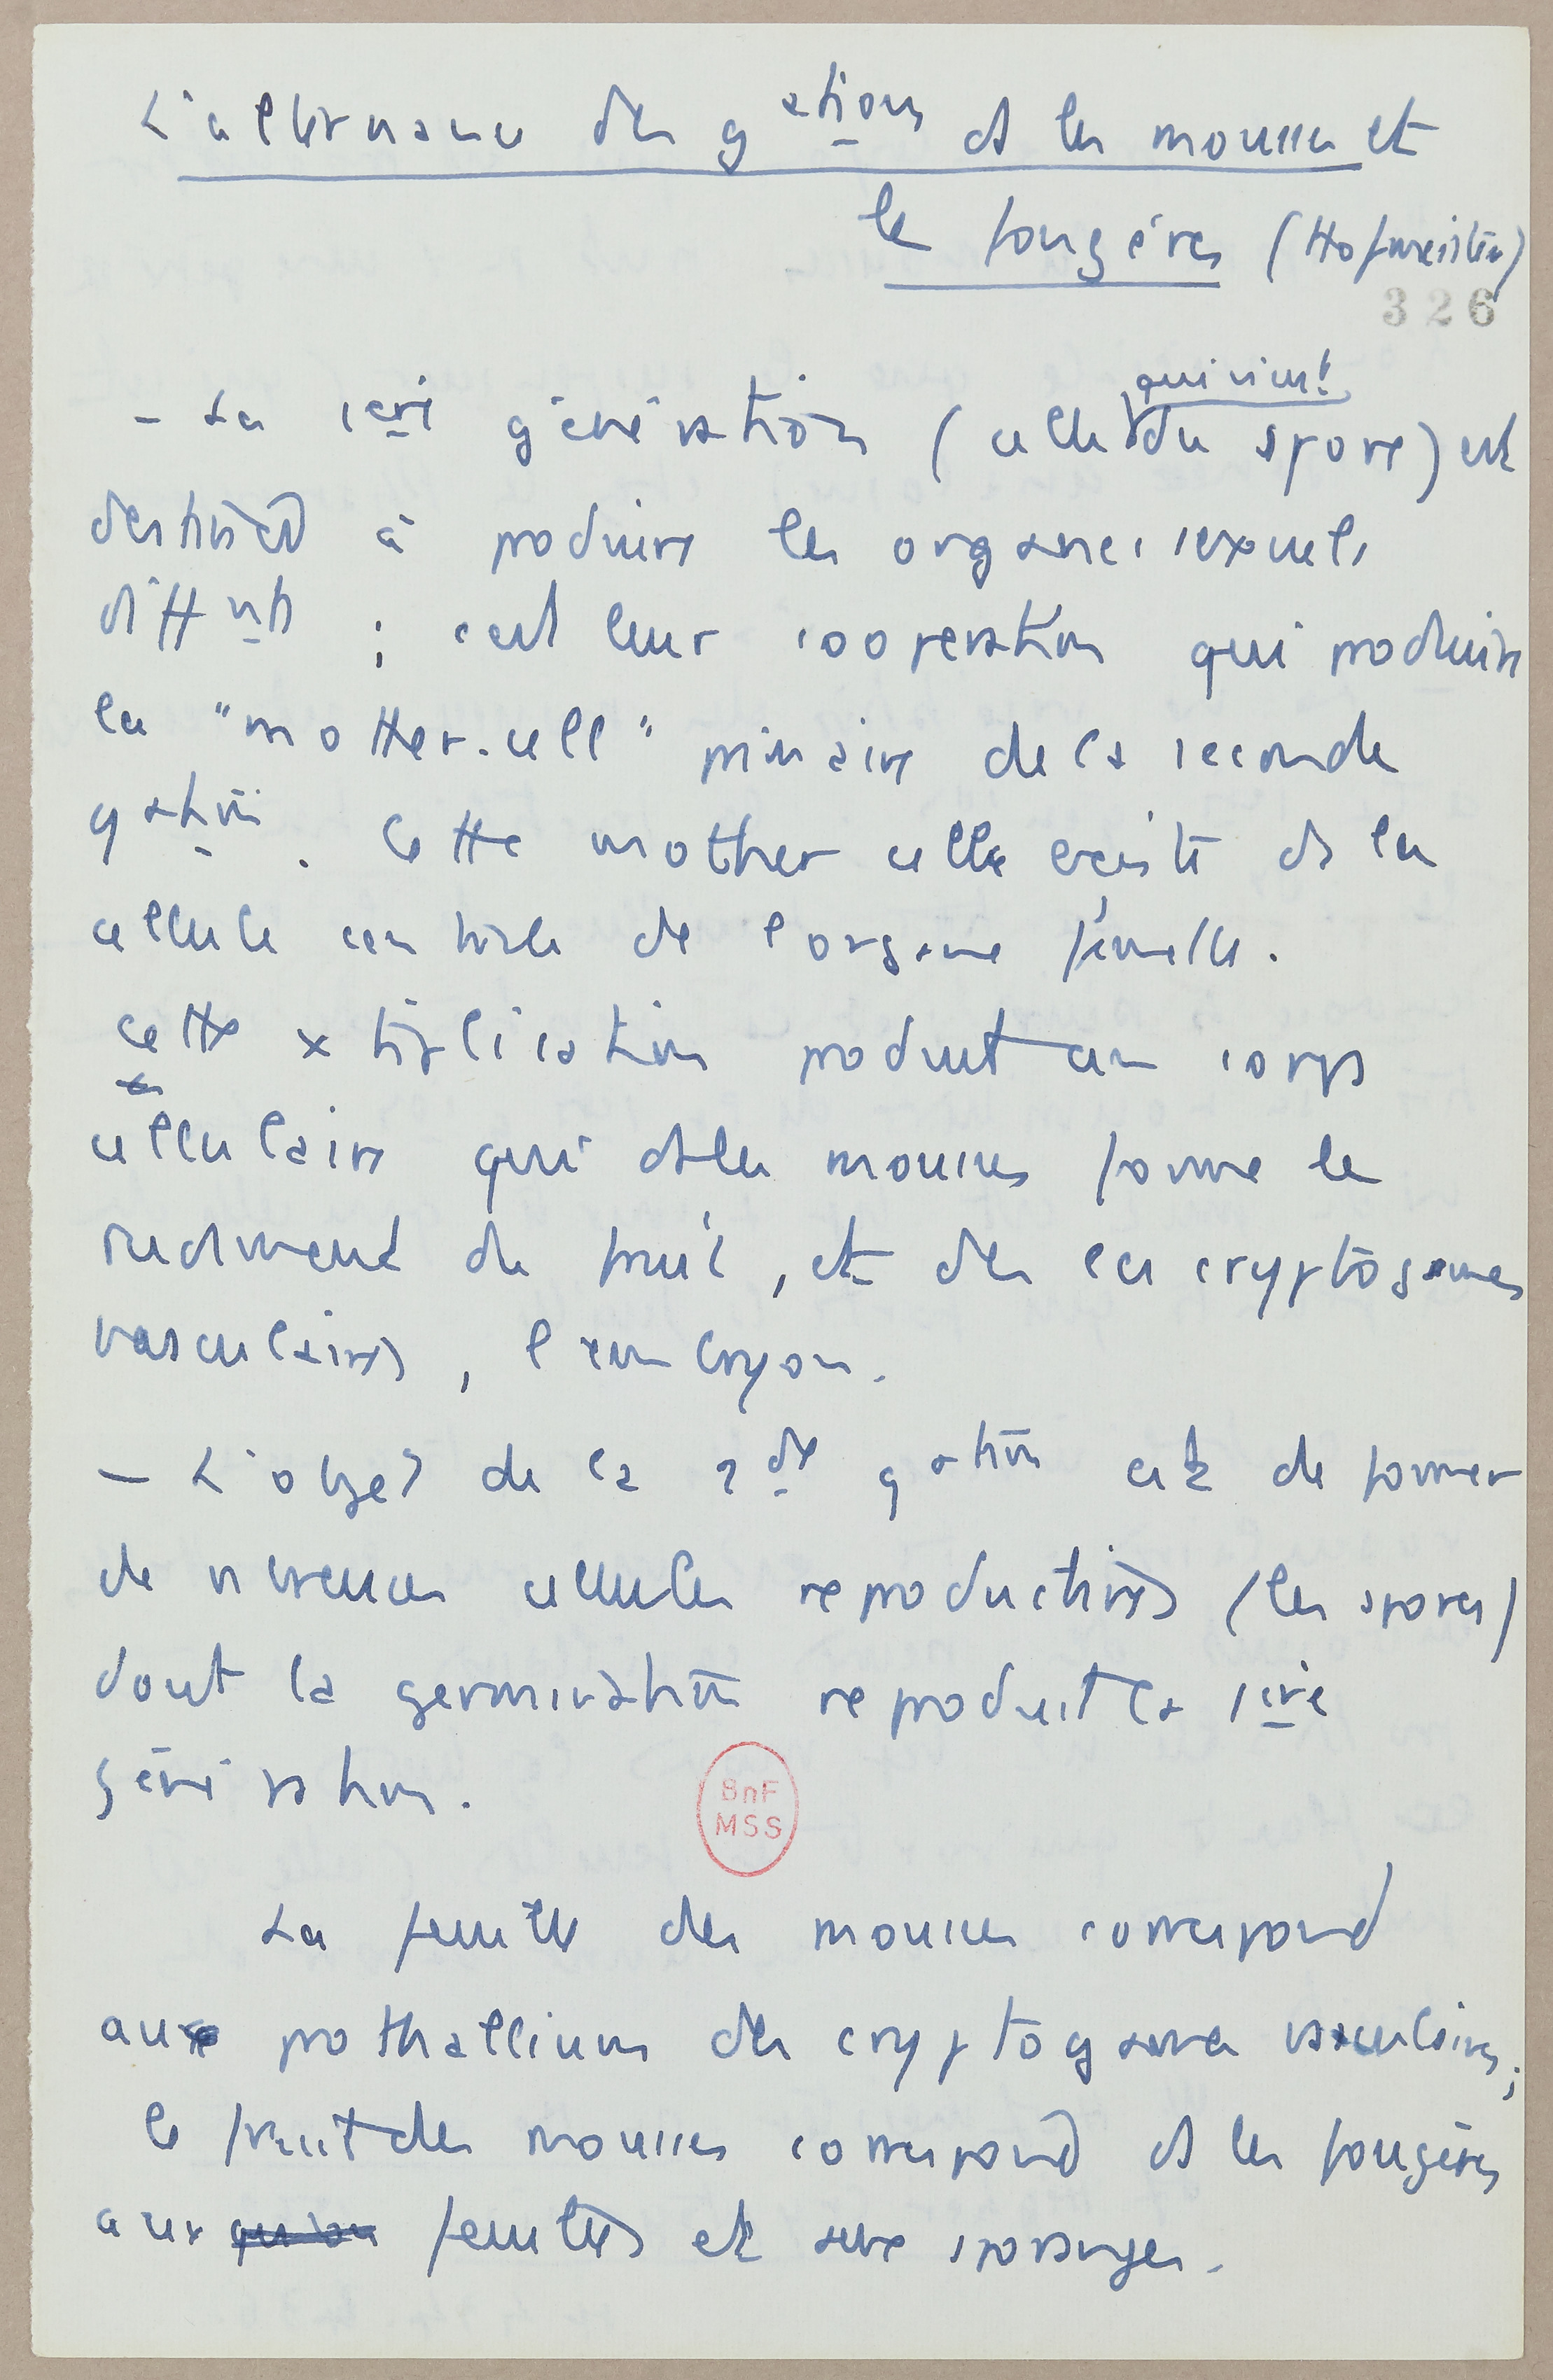 L'alternance des gations ds les mousses et
les fougères (Hofmeister)
326
qui vient
– La 1ère génération (celle du spore) est
destinée à produire les organes sexuels
difffnts ; c'est leur coopération qui produira
la "mother-cell" primaire de la seconde
gation. Cette mother cell existe ds la
cellule centrale de l'organe femelle.
Cette xtiplication produit un corps
cellulaire qui ds les mousses forme le
rudiment du fruit, et des les cryptogames
vasculaires, l'embryon.
– L'objet de la 2de gation est de former
de nbreuses cellules reproductives (les spores)
dont la germination reproduit la 1ère
génération.
BnF
MSS
La feuille des mousses correspond
au prothallium des cryptogames vasculaires;
le fruit des mousses correspond ds les fougères
aux feuilles et aux sporanges.